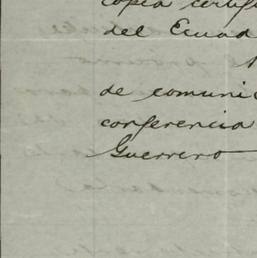 copia certifi
del Ecuad
de comunic
conferencia
Guerrero